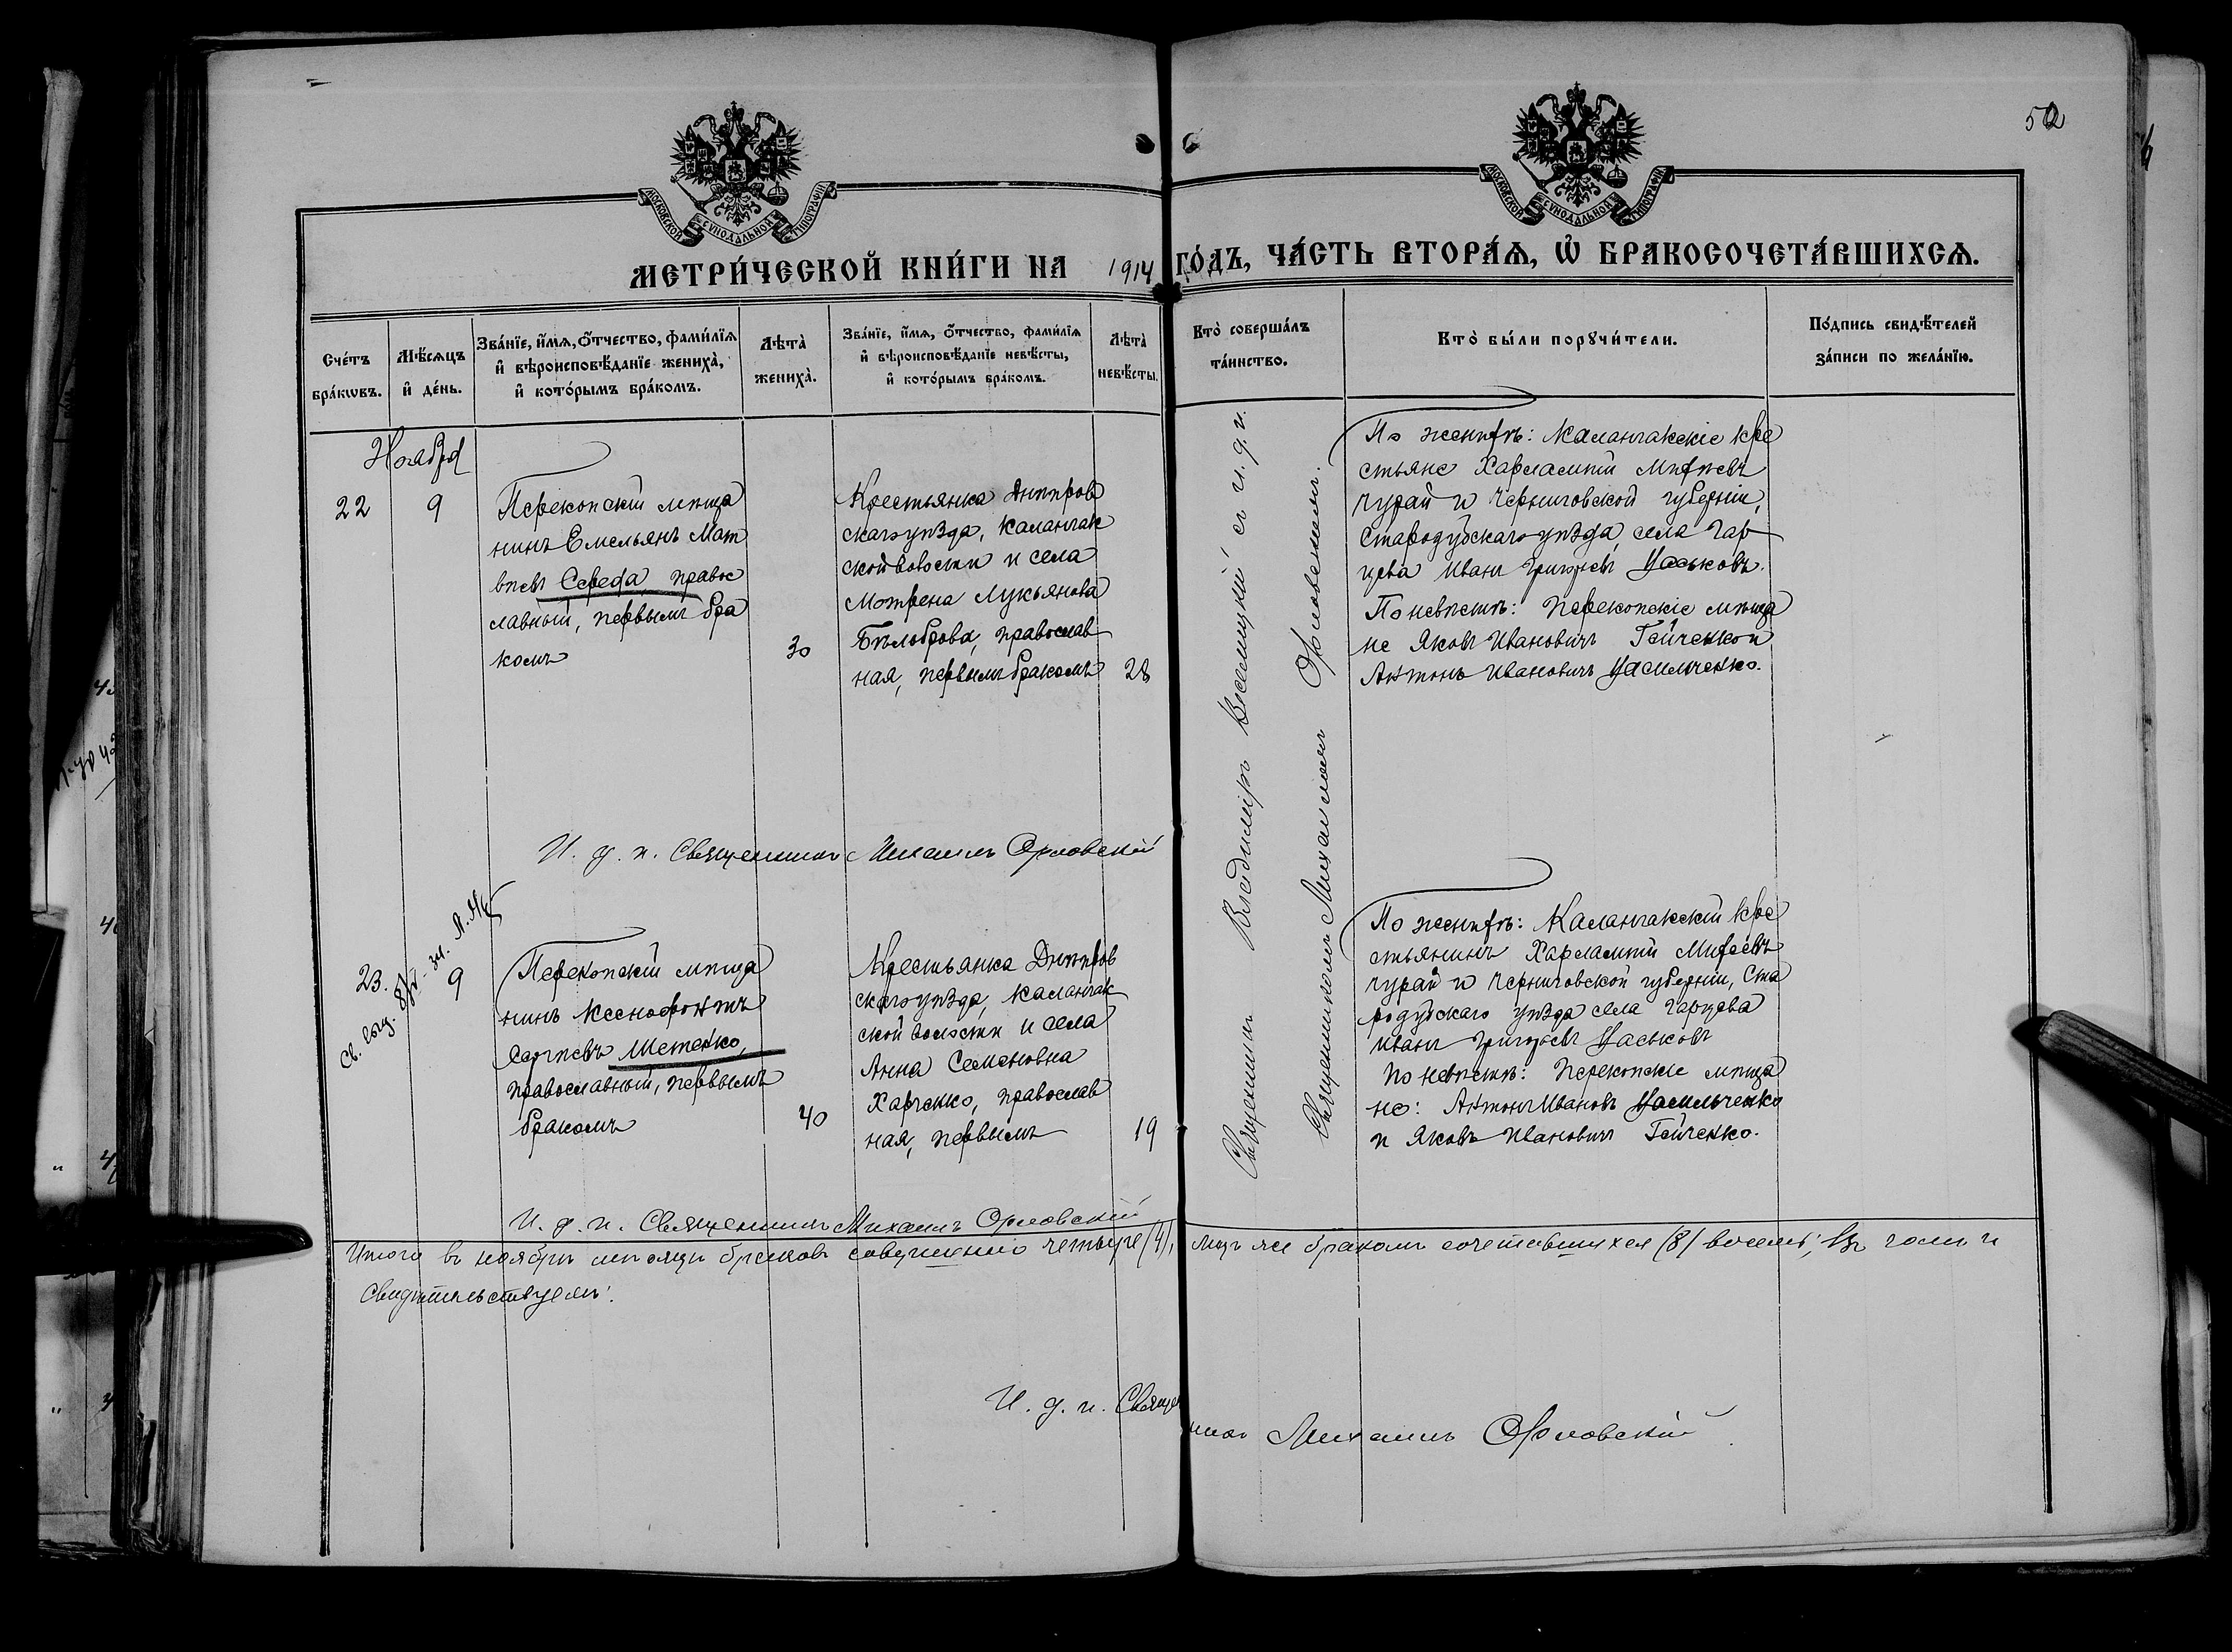 50
МОСКОВСКОЙ СѴНОДАЛЬНОЙ ТИПОГРАФІИ
МОСКОВСКОЙ СѴНОДАЛЬНОЙ ТИПОГРАФІИ
МЕТРИ́ЧЕСКОЙ КНИ́ГИ НА 1914 ГО́ДЪ, ЧА́СТЬ ВТОРА́Ѧ, Ѡ҆ БРАКОСОЧЕТА́ВШИХСѦ.
Сче́тъ
бра́кѡвъ.
Мѣ́сѧцъ
и҆ де́нь.
Зва́нїе, и҆́мѧ, ѻ҆́тчество, фами́лїѧ
и҆ вѣроисповѣ́данїе жениха̀,
и҆ кото́рымъ бра́комъ.
Лѣта̀
жениха̀.
Зва́нїе, и҆́мѧ, ѻ҆́тчество, фами́лїѧ
и҆ вѣроисповѣ́данїе невѣ́сты,
и҆ кото́рымъ бра́комъ.
Лѣта̀
невѣ́сты.
Кто̀ соверша́лъ
та́инство.
Кто̀ бы́ли порꙋчи́тели.
По́дпись свидѣ́телей
за́писи по жела́нїю.
Ноября
22
9
Перекопскій мѣща
нинъ Емельянъ Мат
вѣевъ Середа, правос
лавный, первымъ бра
комъ
30
Крестьянка Днѣпров
скаго уѣзда, Каланчак
ской волости и села
Мотрена Лукьянова
Бѣлоброва, православ
ная, первымъ бракомъ
28
Священникъ Владиміръ Веселицкій съ и. д. п.
Священникомъ Михаиломъ Орловскимъ.
По женихѣ: Каланчакскіе кре
стьяне Харлампій Михѣевъ
Чурай и Черниговской губерніи,
Стародубскаго уѣзда, села Гар
цева Иванъ Григорьевъ Уаськовъ.
По невѣстѣ: Перекопскіе мѣща
не Яковъ Ивановичъ Гейченко и
Антонъ Ивановичъ Уасильченко.
И. д. п. Священникъ Михаилъ Орловскій
23.
9
Перекопскій мѣща
нинъ Ксенофонтъ
Сергѣевъ Шетенко,
православный, первымъ
бракомъ
40
Крестьянка Днѣпров
скаго уѣзда, Каланчак
ской волости и села
Анна Семеновна
Харченко, православ
ная, первымъ
19
По женихѣ: Каланчакскій кре
стьянинъ Харлампій Михеевъ
Чурай и Черниговской губерніи, Ста
родубскаго уѣзда села Гарцева
Иванъ Григорьевъ Уаськовъ
По невѣстѣ: Перекопскіе мѣща
не: Антонъ Ивановъ Уасильченко
и Яковъ Ивановичъ Гейченко.
И. д. п. Священникъ Михаилъ Орловскій
Итого въ ноябрѣ мѣсяцѣ браковъ совершенно четыре (4), лицъ же бракомъ сочетавшихся (8) восемь; въ чемъ и
свидѣтельствуемъ:
И. д. п. Священникъ Михаилъ Орловскій